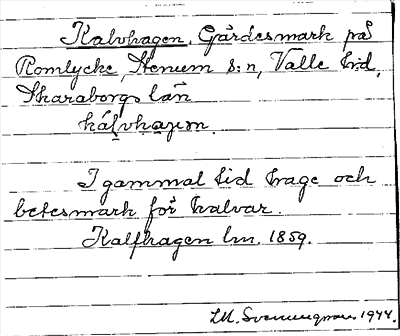 Kalvhagen, Gärdesmark på
Romlycke, Stenum s:n, Valle h:d,
Skaraborgs län
kálvhaɡən.
I gammal tid hage och
betesmark för kalvar.
Kalfhagen lm. 1859.
1944.